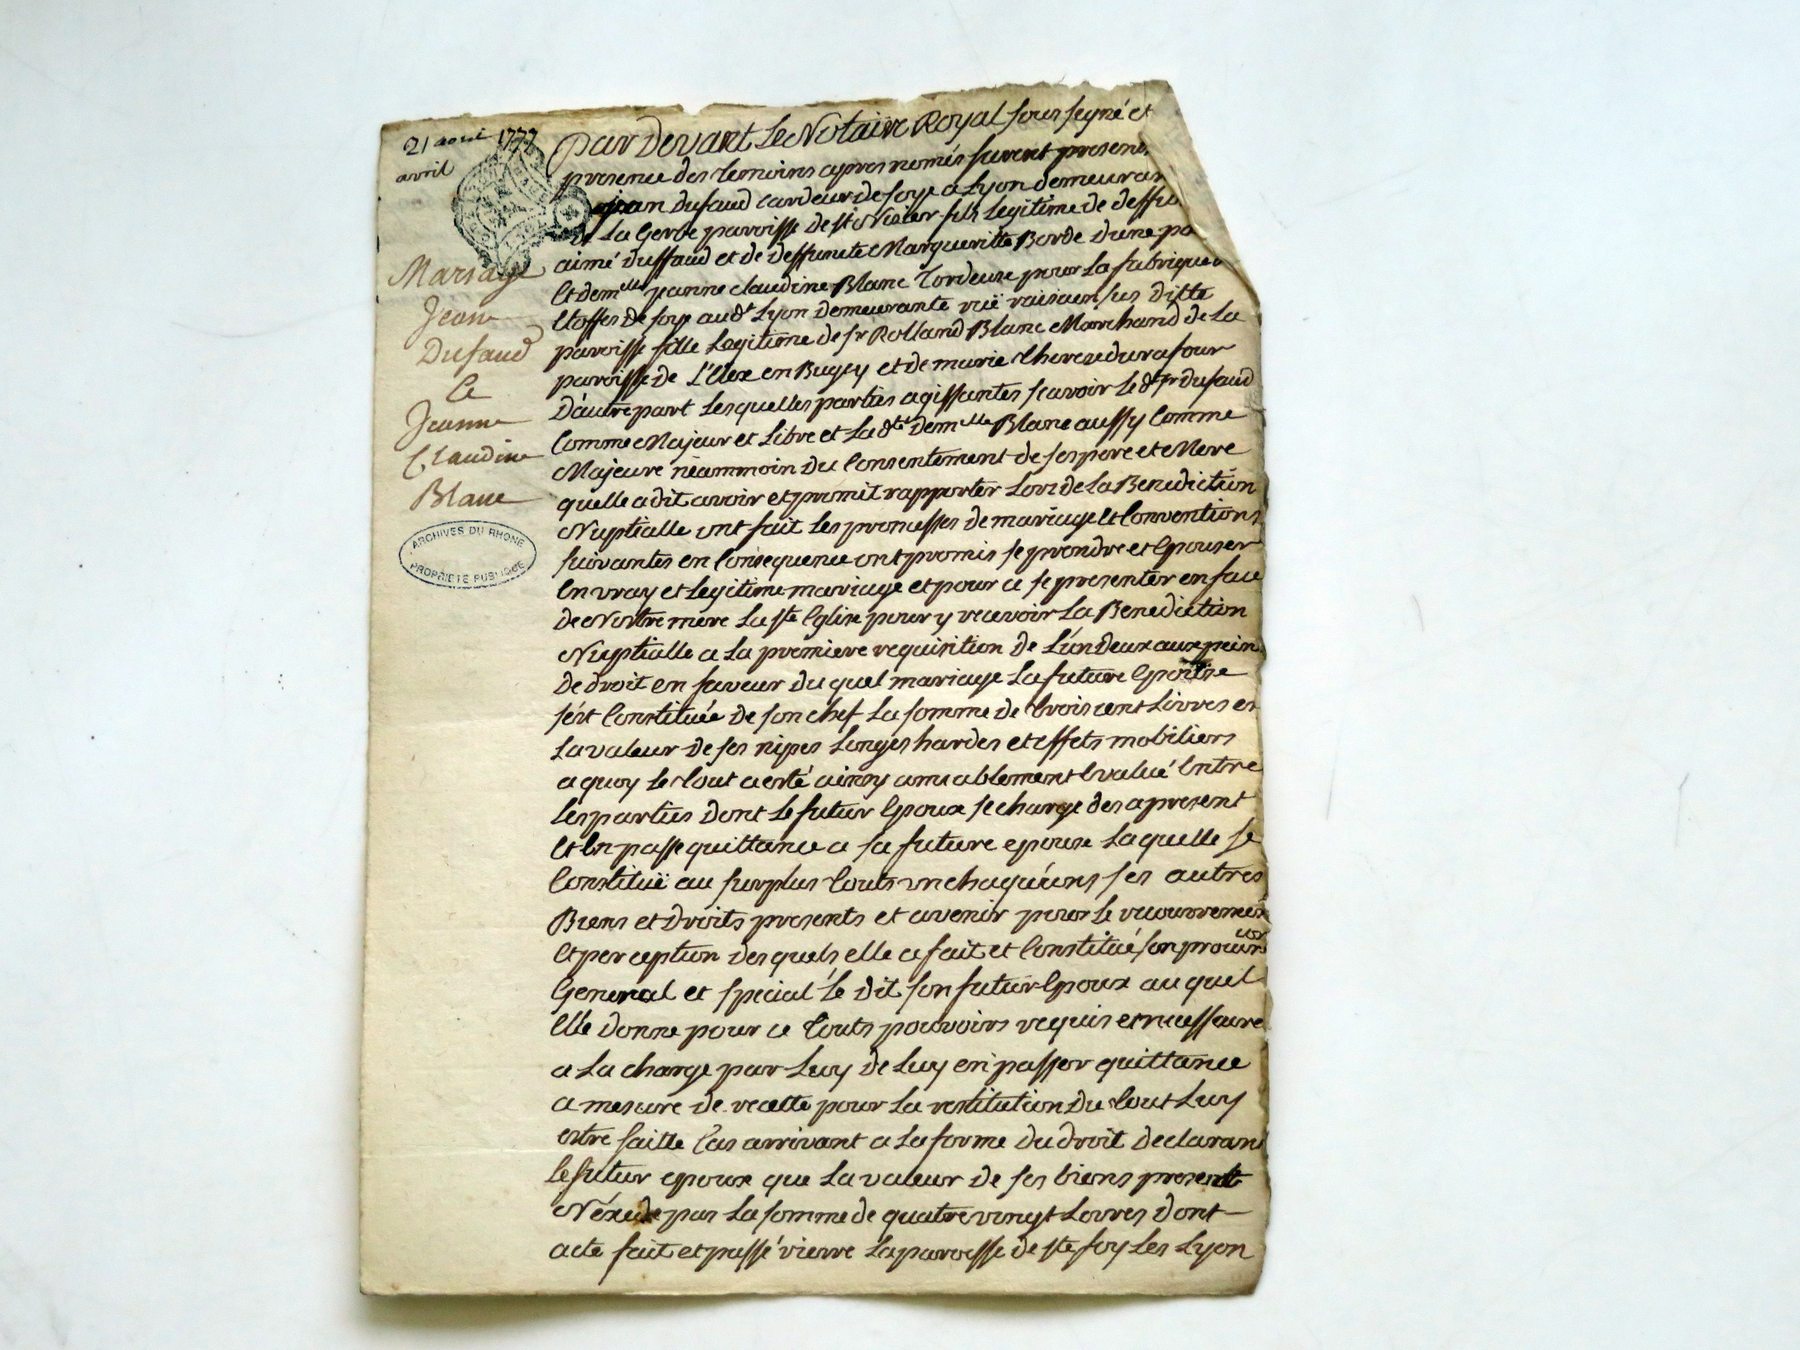 21 aout 1777
avril
Mariage
Jean
Dufaud
Et
Jeanne
Claudine
Blanc
ARCHIVES DU RHONE
PROPRIETE PUBLIQUE
Par Devant Le Notaire Royal sous signé et
presence des temoins apres només furent presens
jean dufaud cardeur de soye a Lyon demeurant
La Gerbe paroisse de st Nizier fils Legitime de deffunt
aimé duffaud et de deffunte Margueritte Borde dune part
Et demlle jeanne claudine Blanc Tordeuse pour La fabrique
Etoffes de soye audt Lyon demeurante ruë raisain sus ditte
paroisse fille Legitime de sr Rolland Blanc Marchand de La
paroisse de L'Elex en Bugey et de marie therese durafour
D'autre part Les quelles parties agissantes scavoir Le dt sr dufaud
Comme Majeur et Libre et La dte demlle Blanc aussy Comme
Majeure néammoin du Consentement de ses pere et Mere
quelle a dit avoir et promit rapporter Lors de La Benediction
Nuptialle ont fait Les promesses de mariage Et Conventions
suivantes en Consequence ont promis se prendre et Epouser
En vray et Legitime mariage et pour ce se presenter en face
de Nostre mere La ste Eglise pour y recevoir La Benediction
Nuptialle a La premiere requisition de L'un deux aux peine
de droit en faveur du quel mariage La future Epouse
s'est Constituée de son chef La somme de trois cent Livres en
La valeur de ses nipes Linges hardes et effets mobiliers
a quoy Le tout a esté ainsy amiablement Evalué Entre
Les parties dont Le futur Epoux se charge des a present
Et En passe quittance a sa future epouse La quelle se
Constituë au surplus touts un chaqu'uns ses autres
Biens et Droits presents et avenir pour Le recouvrement
Et perception des quels elle a fait et Constitué son procureur
General et special Le dit son futur Epoux au quel
Elle donne pour ce touts pouvoirs requis et necessaire
a La charge par Luy de Luy en passer quittance
a mesure de recette pour La restitution du tout Luy
estre faitte Cas arrivant a La forme du droit declarant
Le futur epoux que La valeur de ses biens present
N'éxcede pas La somme de quatre vingt Livres dont
acte fait et passé La paroisse de ste foy Les Lyon